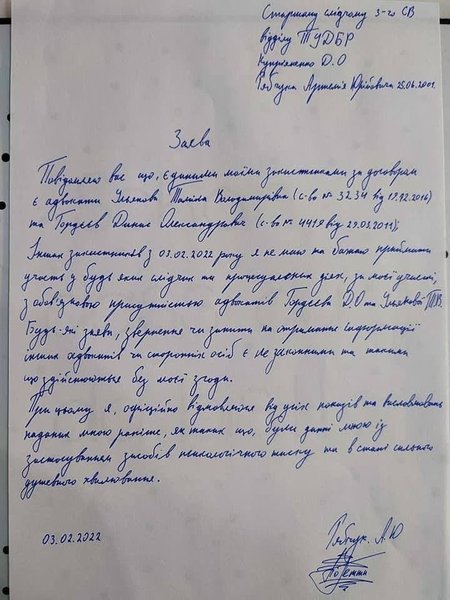 Старшому слідчому 3-го СВ
відділу ТУДБР
Купріяненко Д.О
Рябчука Артемія Юрійовича 25.06.2001.
Заява
Повідомляю вас що, єдиними моїми захистниками за договорам
є адвокати Ульянова Тетяна Володимирівна (с-во № 3234 від 19.12.2016)
та Гордеєв Динис Олександрович (с-во № 4419 від 29.03.2011);
Інших захистників з 03.02.2022 року я не маю та бажаю приймати
участь у будь яких слідчих та процесуальних діях, за моєї участі,
з обов'язковою присутністью адвокатів Гордєєва Д.О та Ульянової Т.В.
Будь-які заяви, звернення чи запити на отримання інформації
інших адвокатів чи сторонніх осіб є не законними та такими
що здійснюються без моєї згоди.
При цьому я, офіційно відмовляюся від усіх показів та висловлювань
наданих мною раніше, як таких що, були данні мною із
застосуванням засобів психологічного тиску та в стані сильного
душевного хвилювання.
03.02.2022
Рябчук. А.Ю